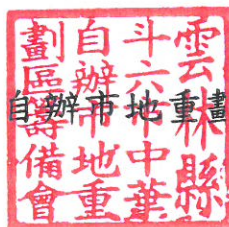 雲林縣
斗六市中華
自辦市地重
劃區籌備會
自辦市地重劃